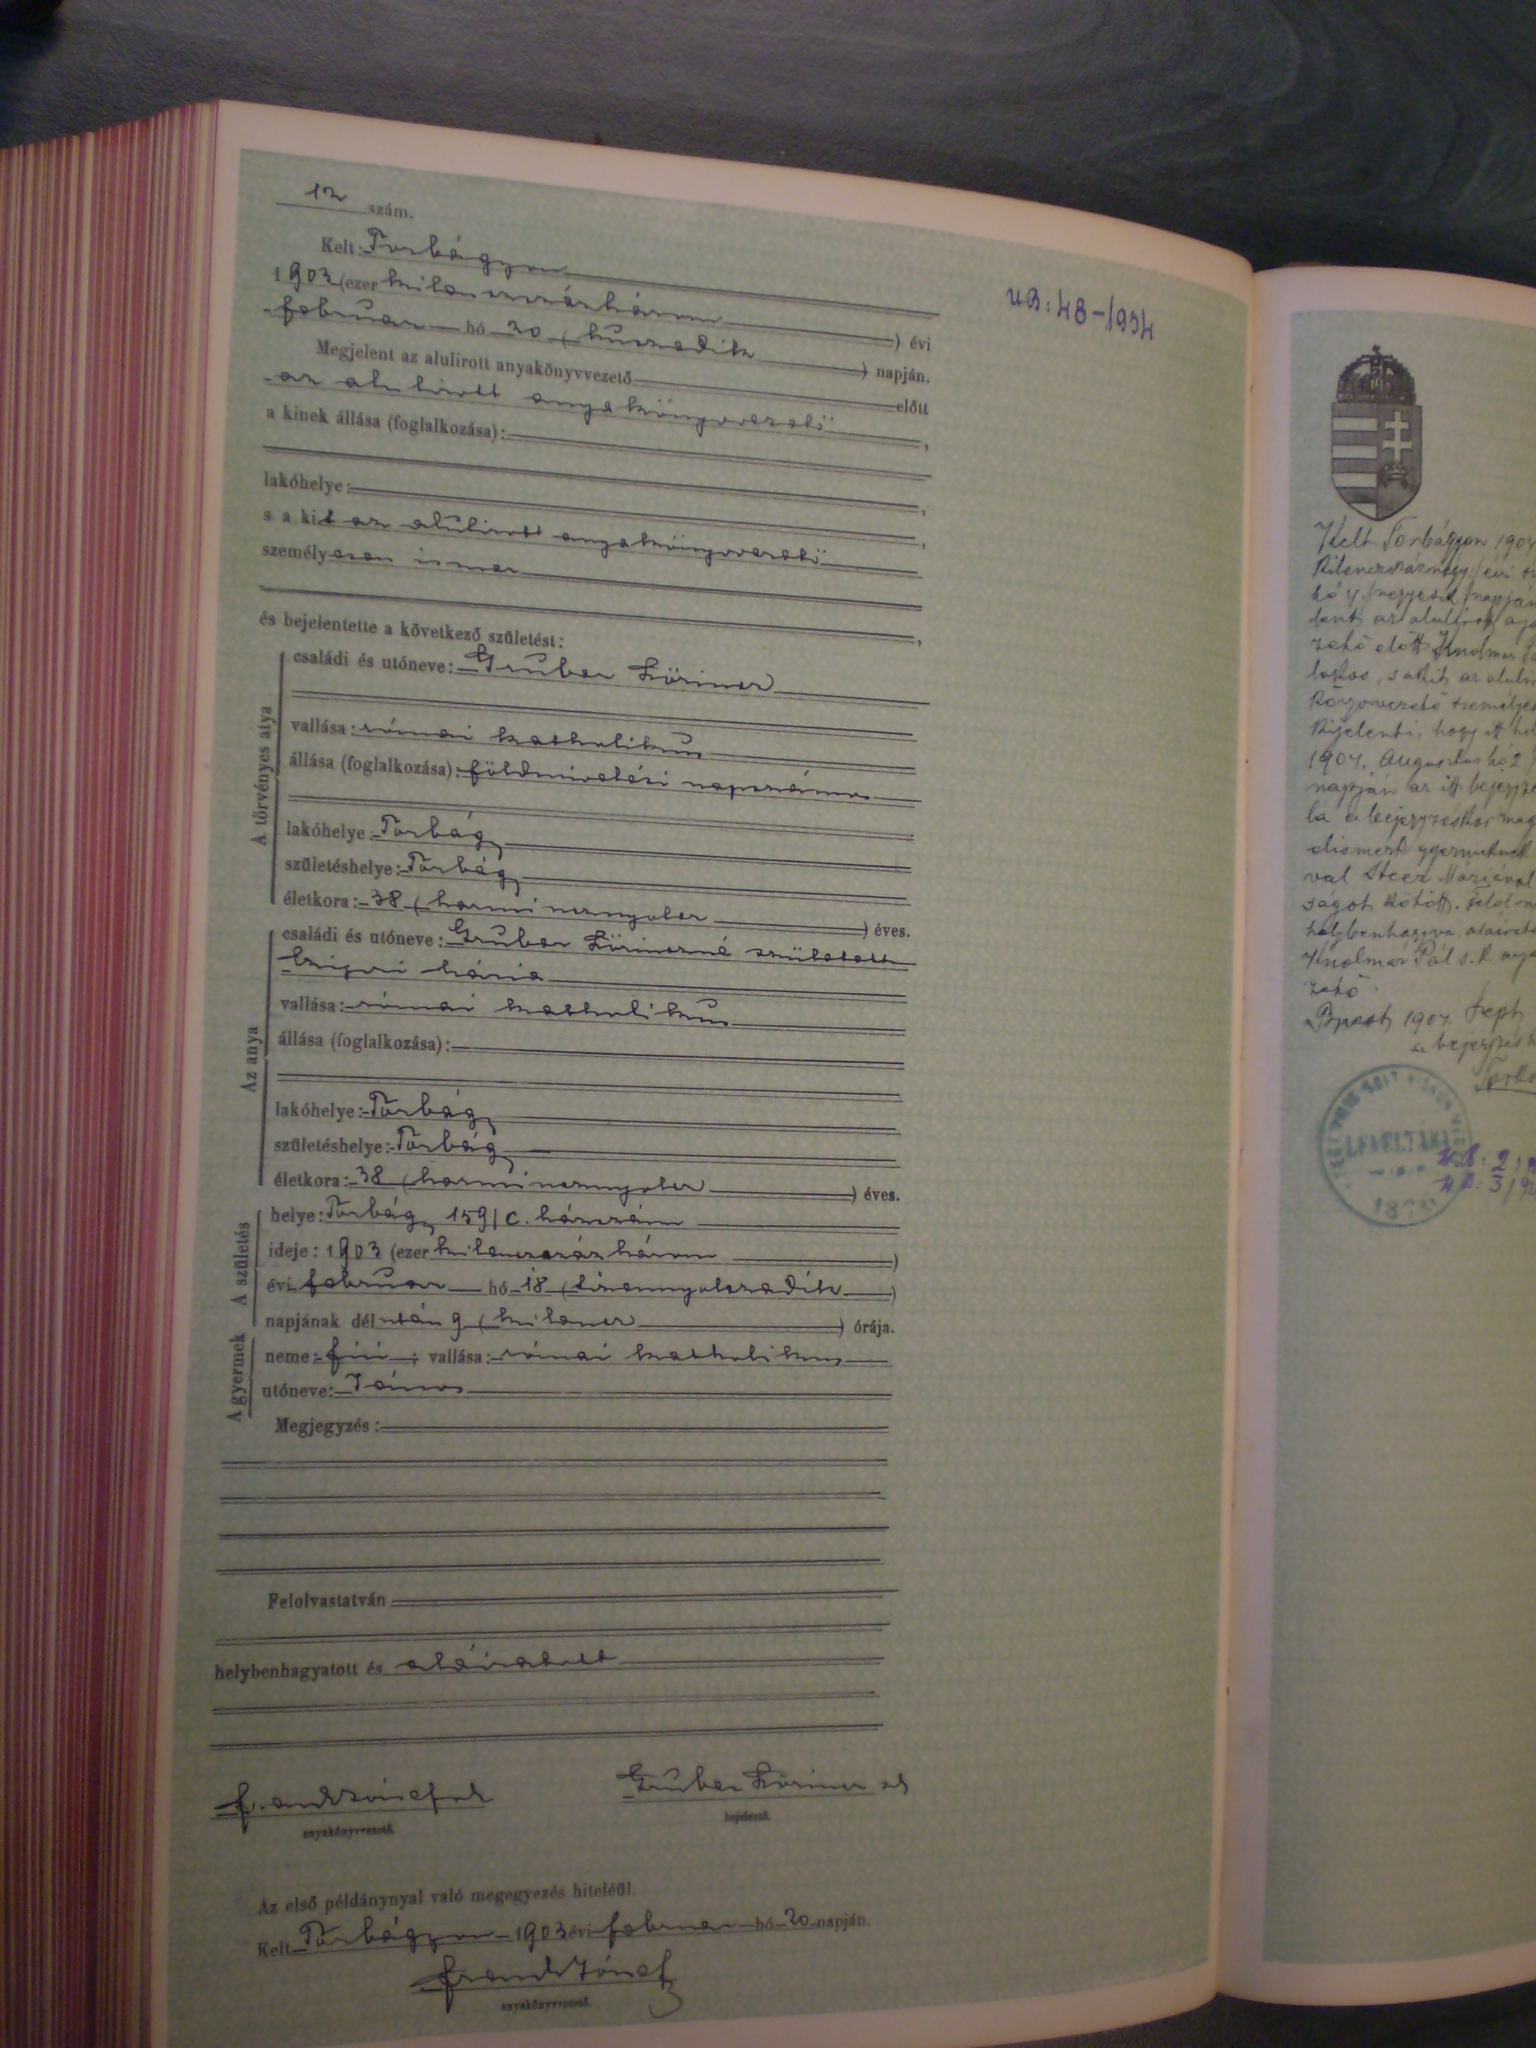 12 szám.
Kelt: Torbágyon
1903 (ezer kilenczszázhárom) évi
február hó 20 (huszadik) napján.
Megjelent az alulirott anyakönyvvezető előtt
az alulirott anyakönyvvezető,
a kinek állása (foglalkozása):
lakóhelye:
s a kit az alulirott anyakönyvvezető
személyesen ismer
és bejelentette a következő születést:
A törvényes atya
családi és utóneve: Gruber Lőrincz
vallása: római katholikus
állása (foglalkozása): földmivelési napszámos
lakóhelye: Torbágy
születéshelye: Torbágy
életkora: 38 (harmincznyolcz) éves.
Az anya
családi és utóneve: Gruber Lőrinczné született
Mária
vallása: római katholikus
állása (foglalkozása):
lakóhelye: Torbágy
születéshelye: Torbágy
életkora: 38 (harmincznyolcz) éves.
A születés
helye: Torbágy 159/c. házszám
ideje: 1903 (ezer kilenczszázhárom)
évi február hó 18 (tizennyolczadik)
napjának délután 9 (kilencz) órája.
A gyermek
neme: fiú; vallása: római katholikus
utóneve: János
Megjegyzés:
Felolvastatván
helybenhagyatott és aláiratott
Frank József sk
Gruber Lőrincz sk
anyakönyvvezető.
bejelentő.
Az első példánynyal való megegyezés hiteléül.
Kelt Torbágyon 1903 évi február hó 20 napján.
Frank József
anyakönyvvezető.
U.B: 48-/934
Kelt Torbágyon 190
hó 4 /negyedik/ napján
lent az alulirott
zető előtt Knolmár
lakos, s akit az
személyes
kijelenti, hogy itt
1904. Augusztus hó 2
napján az itt
la a bejegyzéskor
elismert gyermeknek
val Steer Máriával
ságot kötött.
helybenhagyva, aláirat
Knolmár Pál s.k.
zető.
Bpest 1904. Szept
a bejegyzés
LEVÉLTÁRA